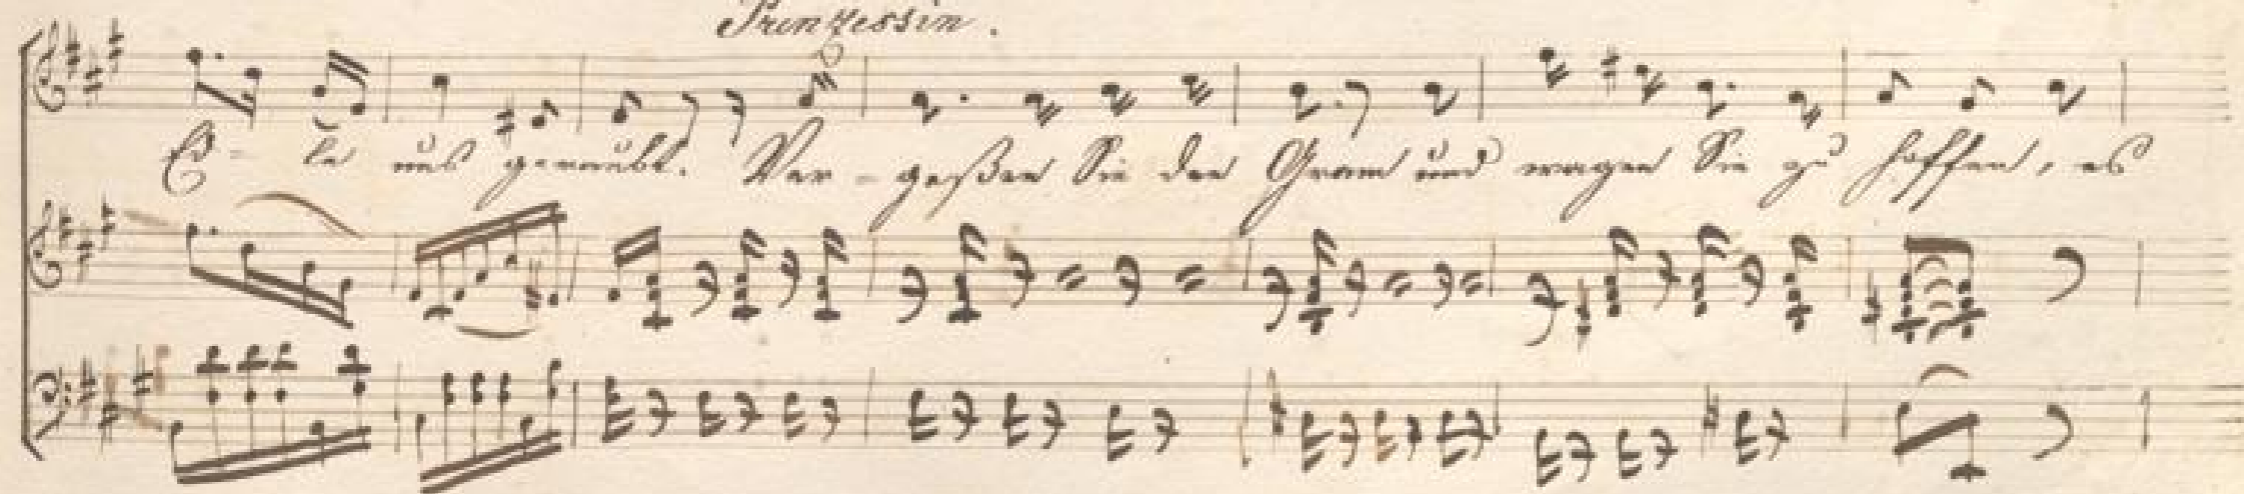 Prinzessin.
E - le uns geraubt. Ver - geßen Sie den Gram und wagen Sie zu hoffen, es